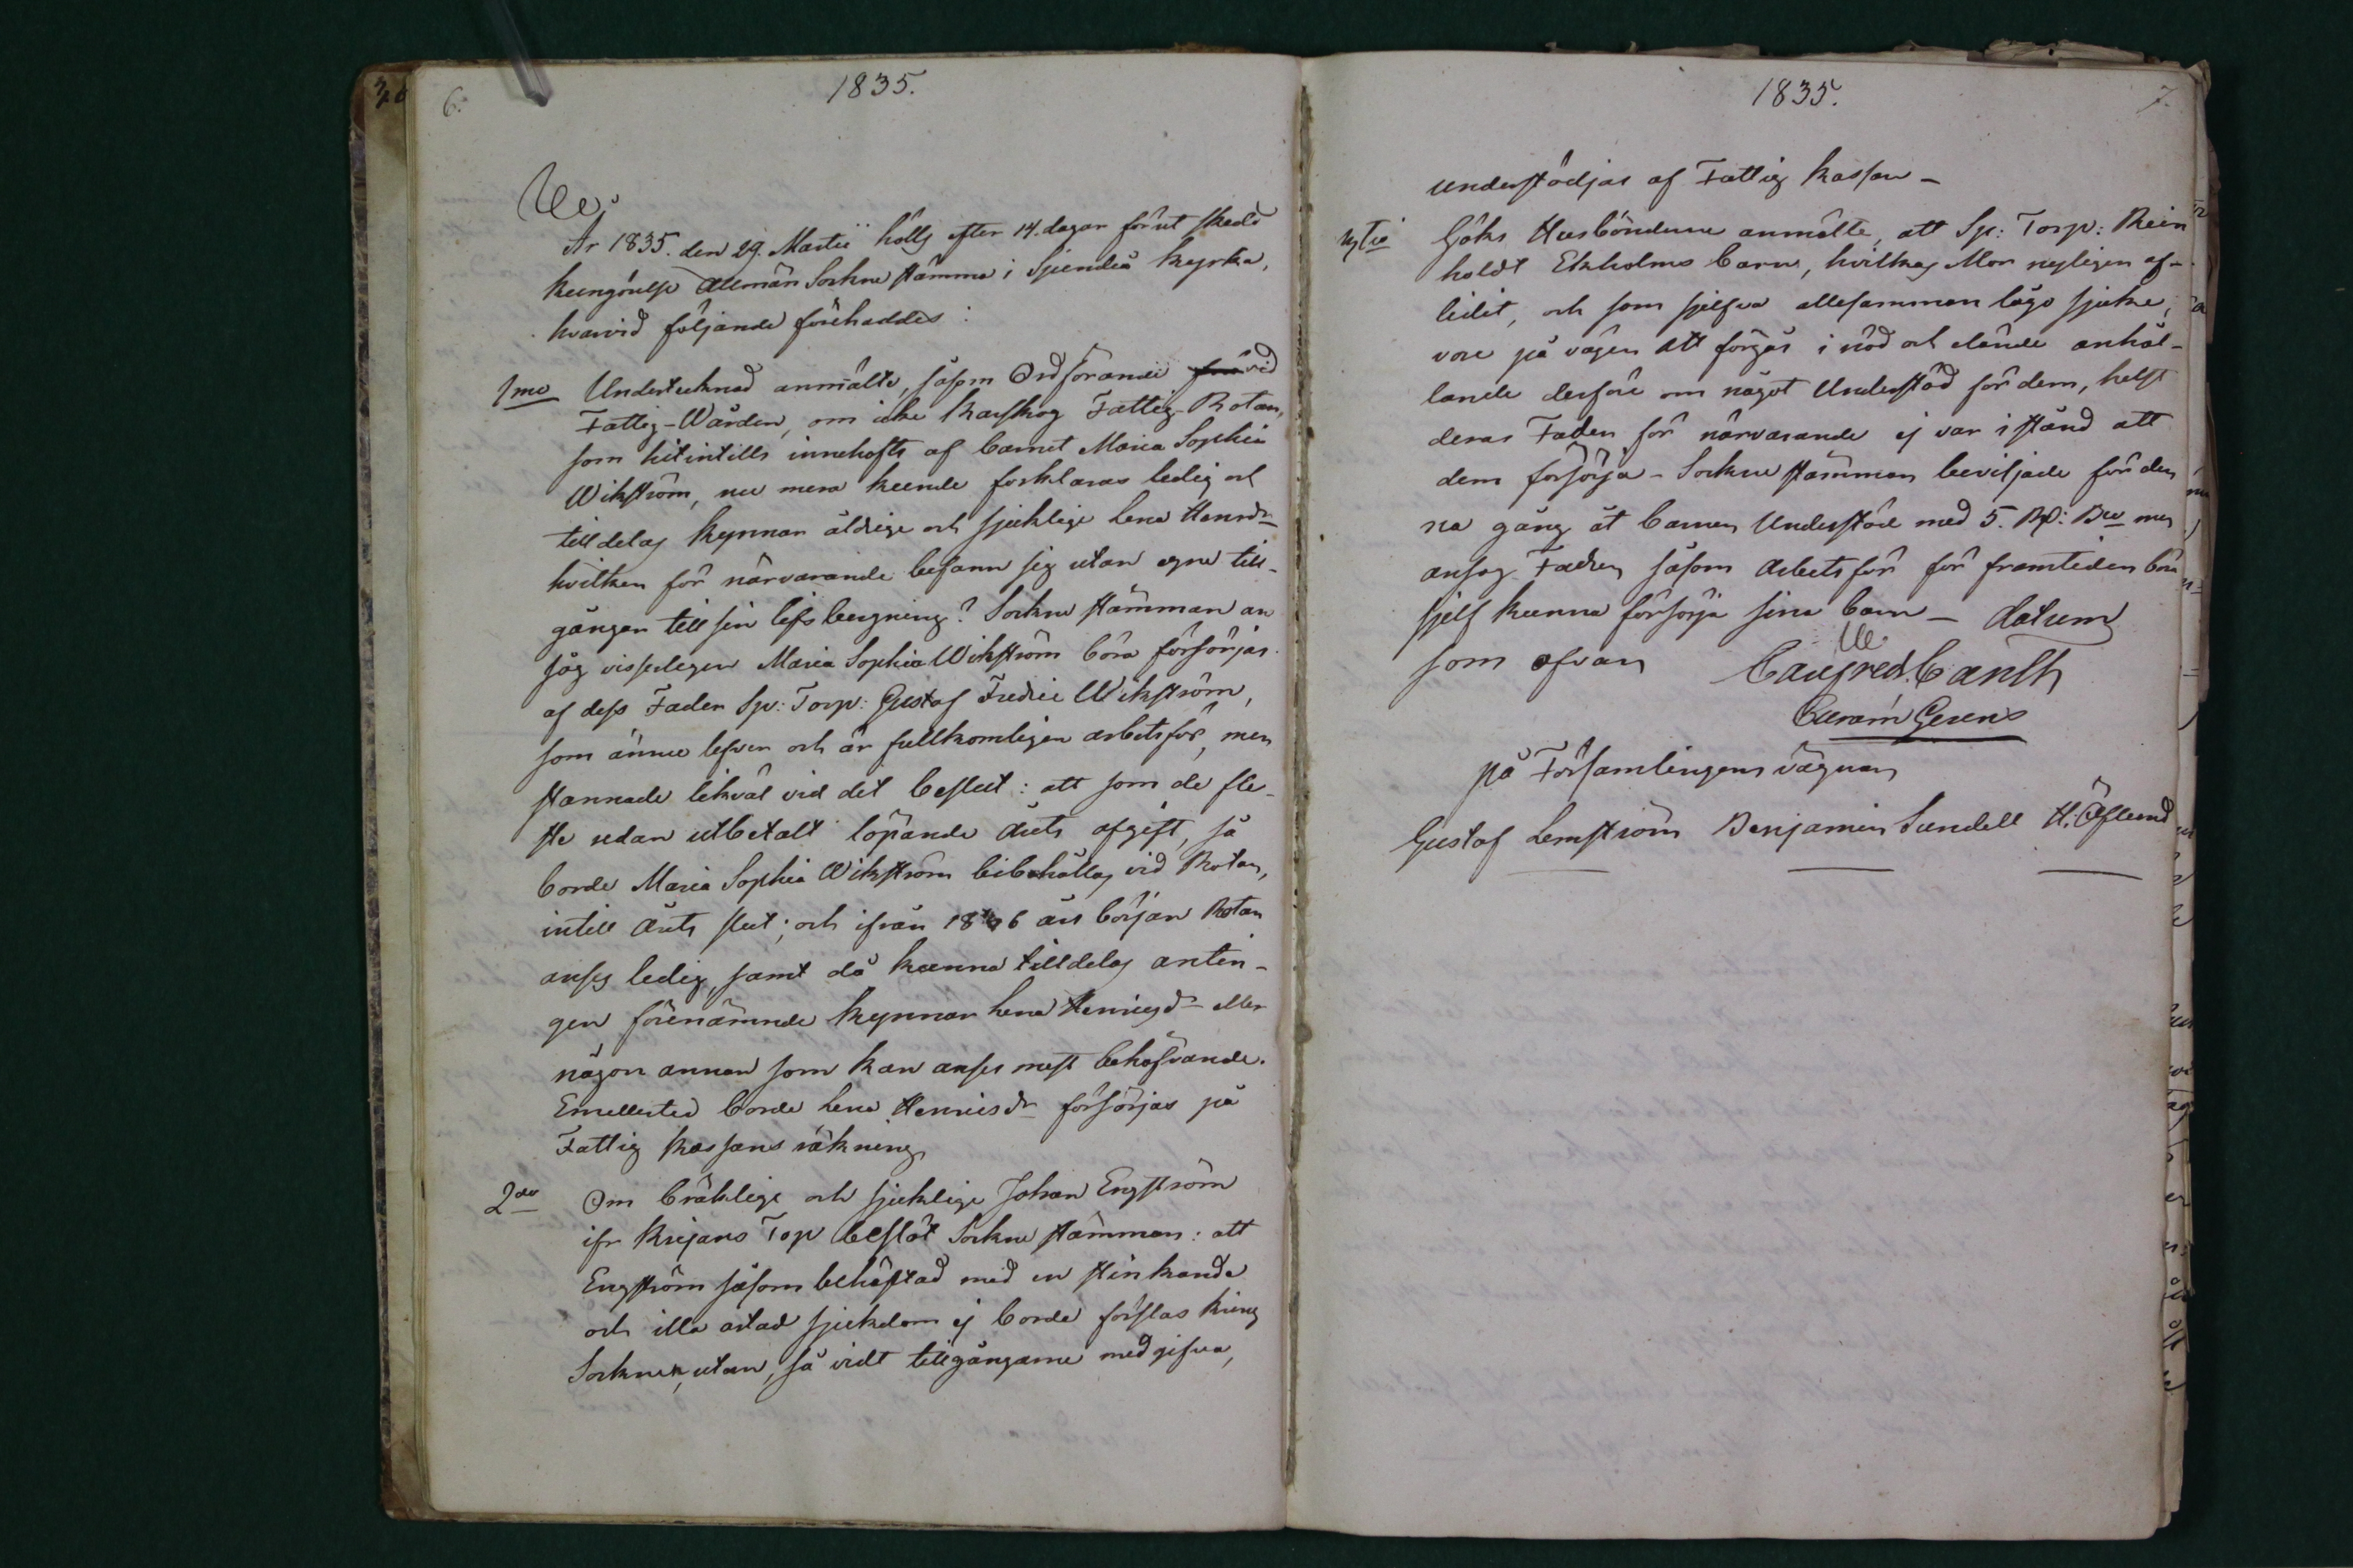 6.
1835.
År 1835. den 29. Martii hölls efter 14. dagar förut skedd
kungörelse Allmän Sockne stämma i Sjundeå kyrka,
hvarvid följande förehaddes:
1mo Undertecknad anmälte, såsom Ordförande för vid
Fattig-Wården, om icke Karskog Fattig-Rotan,
som hitintills innehafts af barnet Maria Sophia
Wikström, nu mera kunde forklaras ledig och
tilldelas Kynnar åldrige och sjuklige Lena Henrsdr
hvilken för närvarande befann sig utan egne till-
gångar till sin lifs bergning? Sockne stämman an
såg visserligen Maria Sophia Wikström böra försörjas
af dess Fader Sp: Torp: Gustaf Fredric Wikström,
som ännu lefver och är fullkomligen arbetsför, men
stannade likväl vid det beslut: att som de fle-
ste redan utbetalt löpande årets afgift, så
borde Maria Sophia Wikström bibehållas vid Rotan,
intill årets slut; och ifrån 1836 års början Rotan
anses ledig, samt då kunna tilldelas antin-
gen förenämnde Kynnar Lena Henricsdr eller
någon annan som kan anses mest behöfvande.
Emellertid borde Lena Henricsdr försörjas på
Fattig kassans räkning
2do Om bräklige och sjuklige Johan Engström
ifr Krejans Torp beslöt Sockne stämman: att
Engström såsom behäftad med en stinkande
och illa artad sjukdom ej borde förslas kring
Socknen, utan, så vidt tillgångarne medgifva,
1835.
7.
understödjas af Fattig kassan –
3tio Göks Husbönderne anmälte, att Sp: Torp: Rein
holdt Ekholms barn, hvilkas Mor nyligen af-
lidit, och som sjelfva allesamman lågo sjuke,
vore på vägen att förgås i nöd och elände anhål-
lande derföre om något Understöd för dem, helst
deras Fader för närvarande ej var i stånd att
dem försörja – Sockne stämman beviljade för den
na gång åt barnen Understöd med 5. Rd: Bco men
ansåg Fadren såsom arbetsför för framtiden böra
sjelf kunna försörja sina barn – datum
som ofvan
på Församlingens vägnar
Gustaf Lemström Benjamin Sundell H: Öflund